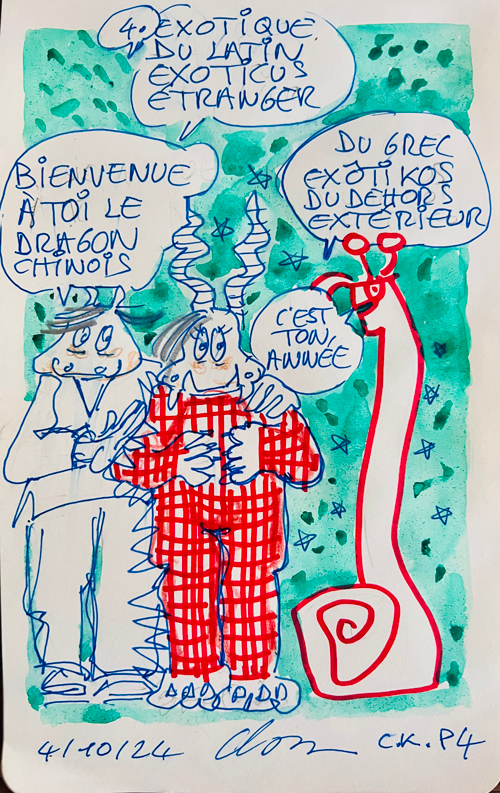 4. EXOTIQUE
DU LATIN
EXOTICUS
ETRANGER
DU GREC
EXÔTIKOS
DU DEHORS
EXTERIEUR
BIENVENUE
A TOI LE
DRAGON
CHINOIS
C'EST
TON
ANNÉE
4/10/24
C.K. P4